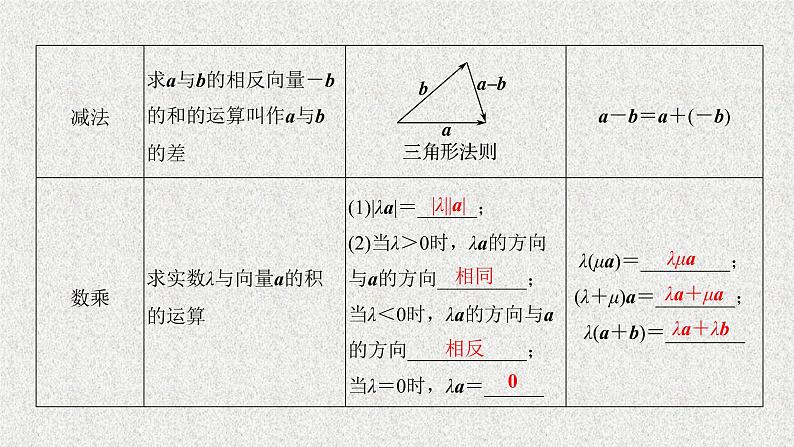 减法
求a与b的相反向量-b
的和的运算叫作a与b
的差
b
a-b
a
三角形法则
a-b=a+(-b)
数乘
求实数λ与向量a的积
的运算
(1)|λa|=|λ||a|;
(2)当λ>0时,λa的方向
与a的方向相同;
当λ<0时,λa的方向与a
的方向相反;
当λ=0时,λa=0
λ(μa)=λμa;
(λ+μ)a=λa+μa;
λ(a+b)=λa+λb